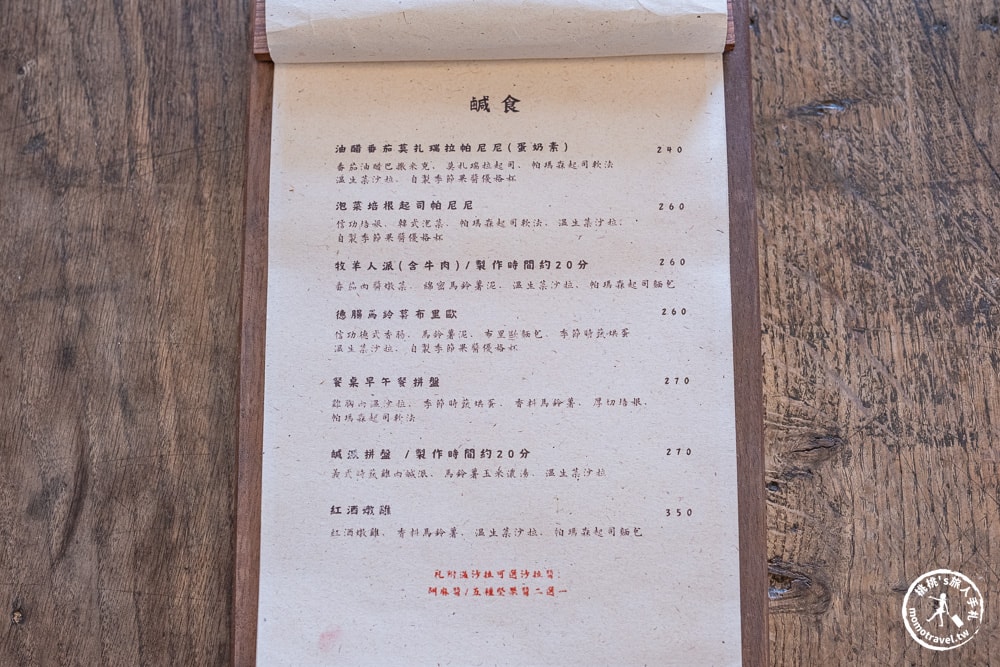 鹹食
油醋番茄莫扎瑞拉帕尼尼(蛋奶素) 240
番茄油醋巴撒米克、莫扎瑞拉起司、帕瑪森起司軟法
溫生菜沙拉、自製季節果醬優格杯
泡菜培根起司帕尼尼 260
信功培根、韓式泡菜、帕瑪森起司軟法、溫生菜沙拉、
自製季節果醬優格杯
牧羊人派(含牛肉)/製作時間約20分 260
番茄肉醬燉菜、綿密馬鈴薯泥、溫生菜沙拉、帕瑪森起司麵包
德腸馬鈴薯布里歐 260
信功德式香腸、馬鈴薯泥、布里歐麵包、季節時蔬烘蛋
溫生菜沙拉、自製季節果醬優格杯
餐桌早午餐拼盤 270
雞胸肉溫沙拉、季節時蔬烘蛋、香料馬鈴薯、厚切培根、
帕瑪森起司軟法
鹹派拼盤 /製作時間約20分 270
義式時蔬雞肉鹹派、馬鈴薯玉米濃湯、溫生菜沙拉
紅酒燉雞 350
紅酒燉雞、香料馬鈴薯、溫生菜沙拉、帕瑪森起司麵包
附溫沙拉可選沙拉醬:
胡麻醬/五種堅果醬二選一
桃桃's旅人手札
momotravel.tw